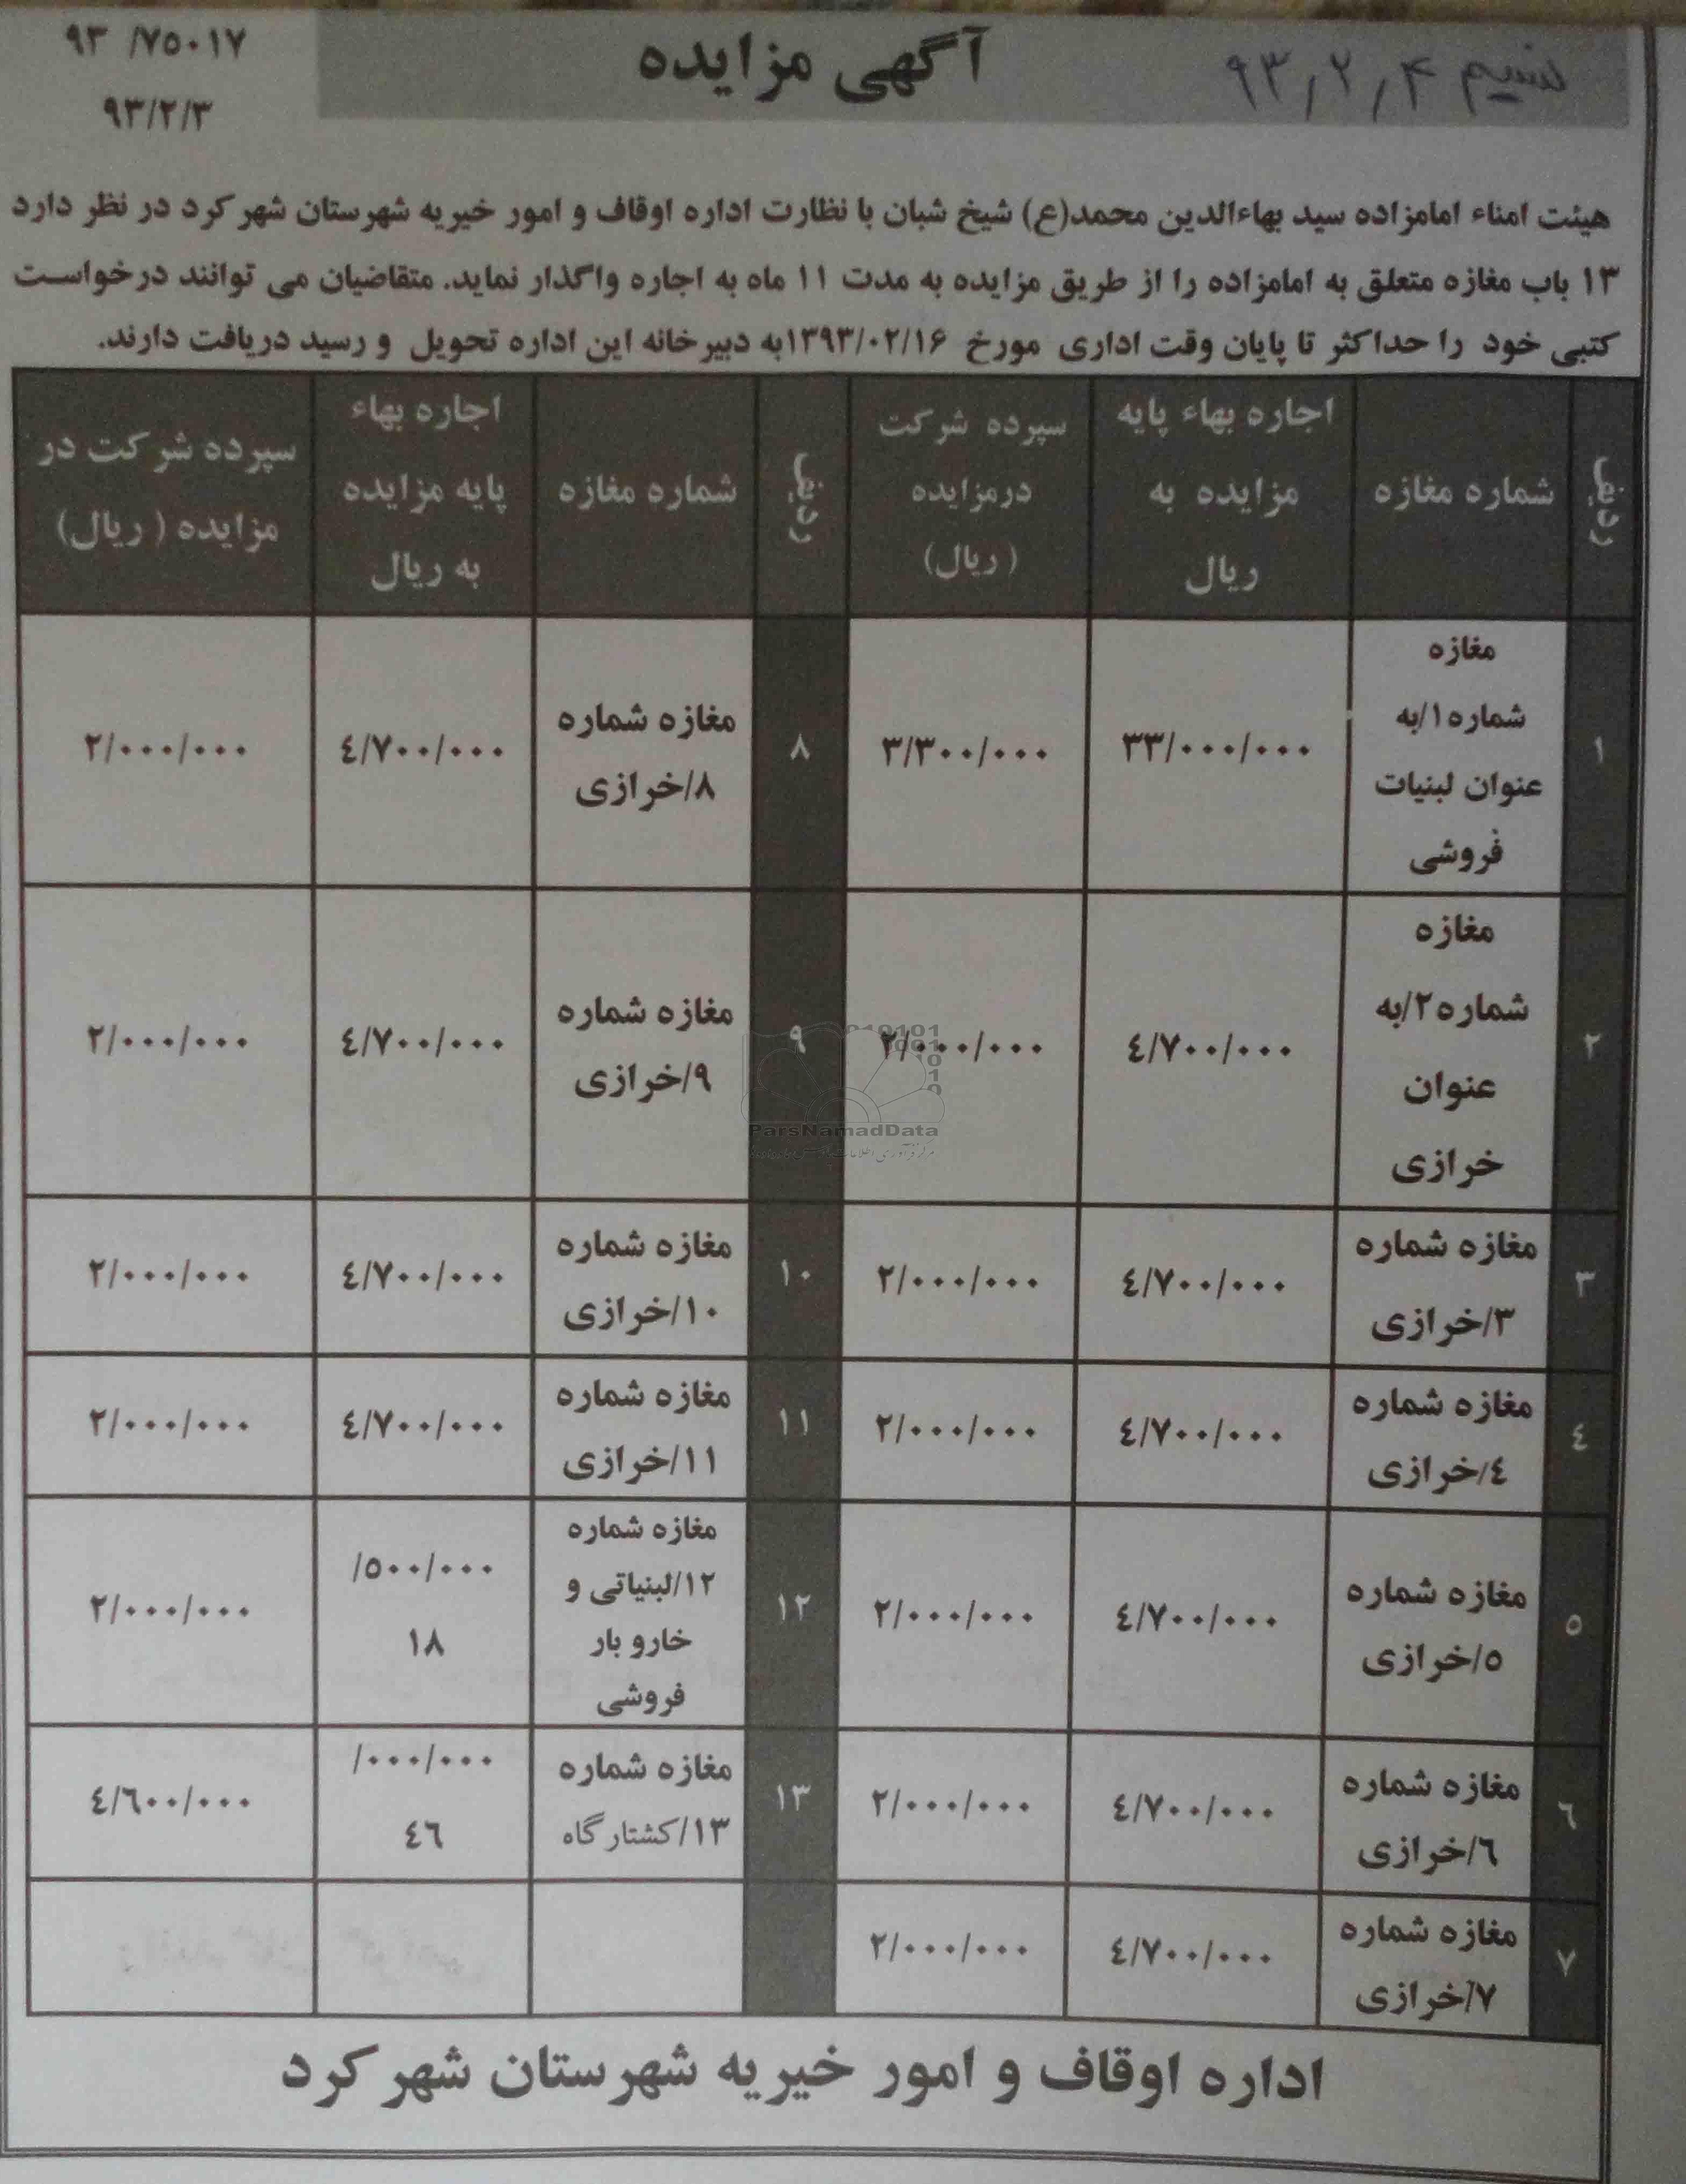 نسیم ۹۳٫۲٫۴
آگهی مزایده
۹۳ /۷۵۰۱۷
۹۳/۲/۳
هیئت امناء امامزاده سید بهاءالدین محمد(ع) شیخ شبان با نظارت اداره اوقاف و امور خیریه شهرستان شهرکرد در نظر دارد
۱۳ باب مغازه متعلق به امامزاده را از طریق مزایده به مدت ۱۱ ماه به اجاره واگذار نماید. متقاضیان می توانند درخواست
کتبی خود را حداکثر تا پایان وقت اداری مورخ ۱۳۹۳/۰۲/۱۶به دبیرخانه این اداره تحویل و رسید دریافت دارند.
ردیف
شماره مغازه
اجاره بهاء پایه
مزایده به
ریال
سپرده شرکت
درمزایده
(ریال)
ردیف
شماره مغازه
اجاره بهاء
پایه مزایده
به ریال
سپرده شرکت در
مزایده (ریال)
۱
مغازه
شماره۱/به
عنوان لبنیات
فروشی
۳۳/۰۰۰/۰۰۰
۳/۳۰۰/۰۰۰
۸
مغازه شماره
۸/خرازی
٤/۷۰۰/۰۰۰
۲/۰۰۰/۰۰۰
۲
مغازه
شماره۲/به
عنوان
خرازی
٤/۷۰۰/۰۰۰
۲/۰۰۰/۰۰۰
۹
مغازه شماره
۹/خرازی
٤/۷۰۰/۰۰۰
۲/۰۰۰/۰۰۰
ParsNamadData
۳
مغازه شماره
۳/خرازی
٤/۷۰۰/۰۰۰
۲/۰۰۰/۰۰۰
۱۰
مغازه شماره
۱۰/خرازی
٤/۷۰۰/۰۰۰
۲/۰۰۰/۰۰۰
٤
مغازه شماره
٤/خرازی
٤/۷۰۰/۰۰۰
۲/۰۰۰/۰۰۰
۱۱
مغازه شماره
۱۱/خرازی
٤/۷۰۰/۰۰۰
۲/۰۰۰/۰۰۰
٥
مغازه شماره
٥/خرازی
٤/۷۰۰/۰۰۰
۲/۰۰۰/۰۰۰
۱۲
مغازه شماره
۱۲/لبنیاتی و
خارو بار
فروشی
/٥۰۰/۰۰۰
۱۸
۲/۰۰۰/۰۰۰
٦
مغازه شماره
٦/خرازی
٤/۷۰۰/۰۰۰
۲/۰۰۰/۰۰۰
۱۳
مغازه شماره
۱۳/کشتارگاه
/۰۰۰/۰۰۰
٤٦
٤/٦۰۰/۰۰۰
۷
مغازه شماره
۷/خرازی
٤/۷۰۰/۰۰۰
۲/۰۰۰/۰۰۰
اداره اوقاف و امور خیریه شهرستان شهرکرد